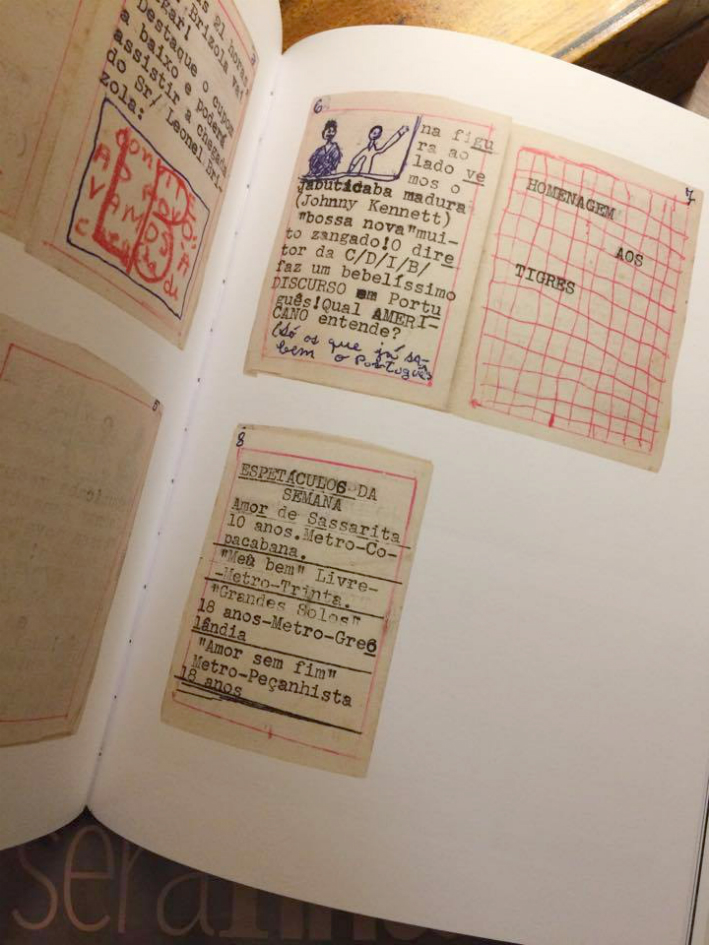 s 21 horas
Brizola vai
egar!
Destaque o cupom
a baixo e poderá
assistir a chegada
do Sr/ Leonel Bri-
zola:
CONVITE
6
na figu
ra ao
lado ve
mos o
jabuticaba madura
(Johnny Kennett)
"bossa nova"mui-
to zangado!O dire
tor da C/D/I/B/
faz um bebelíssimo
DISCURSO em Portu
guês!Qual AMERI-
CANO entende?
(Só os que já sa-
bem o Português
7
HOMENAGEM
AOS
TIGRES
8
ESPETÁCULOS DA
SEMANA
Amor de Sassarita
10 anos.Metro-Co-
pacabana.
"Meu bem" Livre-
-Metro-Trinta.
"Grandes Solos"
18 anos-Metro-Gre6
lândia
"Amor sem fim"
Metro-Peçanhista
18 anos